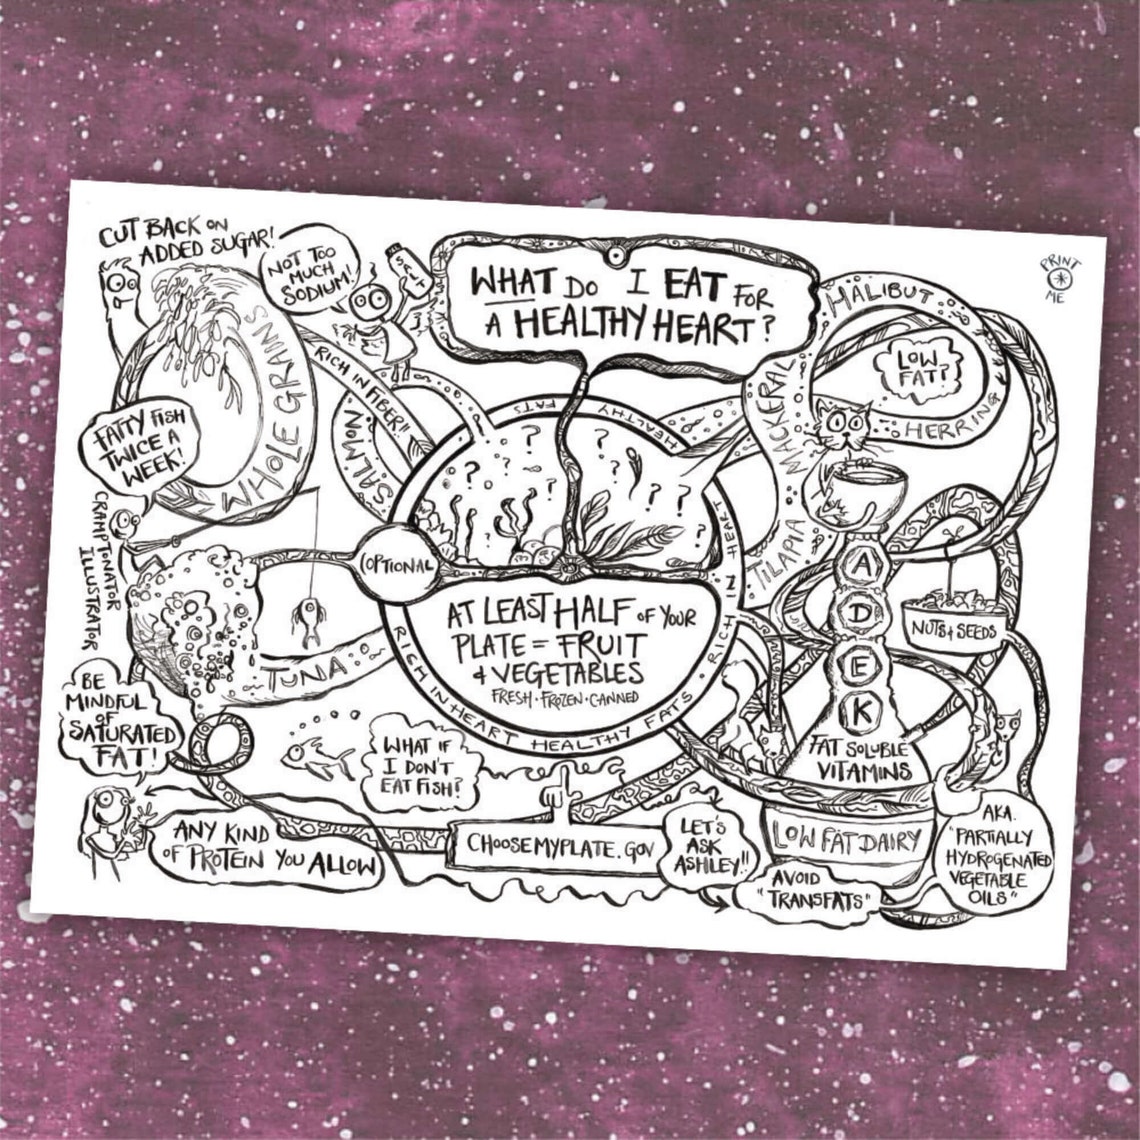 CUT BACK ON
ADDED SUGAR!
NOT TOO
MUCH
SODIUM!
SALT
WHAT DO I EAT FOR
A HEALTHY HEART?
HALIBUT
PRINT
ME
LOW
FAT?
HERRING
MACKERAL
TILAPIA
WHOLE GRAINS
RICH IN FIBER!!
SALMON
FATTY FISH
TWICE A
WEEK!
CRAMPTONATOR
ILLUSTRATOR
? ? ? ?
? ? ? ? ?
OPTIONAL
AT LEAST HALF OF YOUR
PLATE = FRUIT
& VEGETABLES
FRESH · FROZEN · CANNED
RICH IN HEART HEALTHY FATS · RICH IN HEART HEALTHY FATS
A
D
E
K
FAT SOLUBLE
VITAMINS
NUTS & SEEDS
TUNA
BE
MINDFUL
OF
SATURATED
FAT!
WHAT IF
I DON'T
EAT FISH?
ANY KIND
OF PROTEIN YOU ALLOW
CHOOSEMYPLATE.GOV
LET'S
ASK
ASHLEY!!
LOW FAT DAIRY
AVOID
"TRANSFATS"
AKA.
"PARTIALLY
HYDROGENATED
VEGETABLE
OILS"